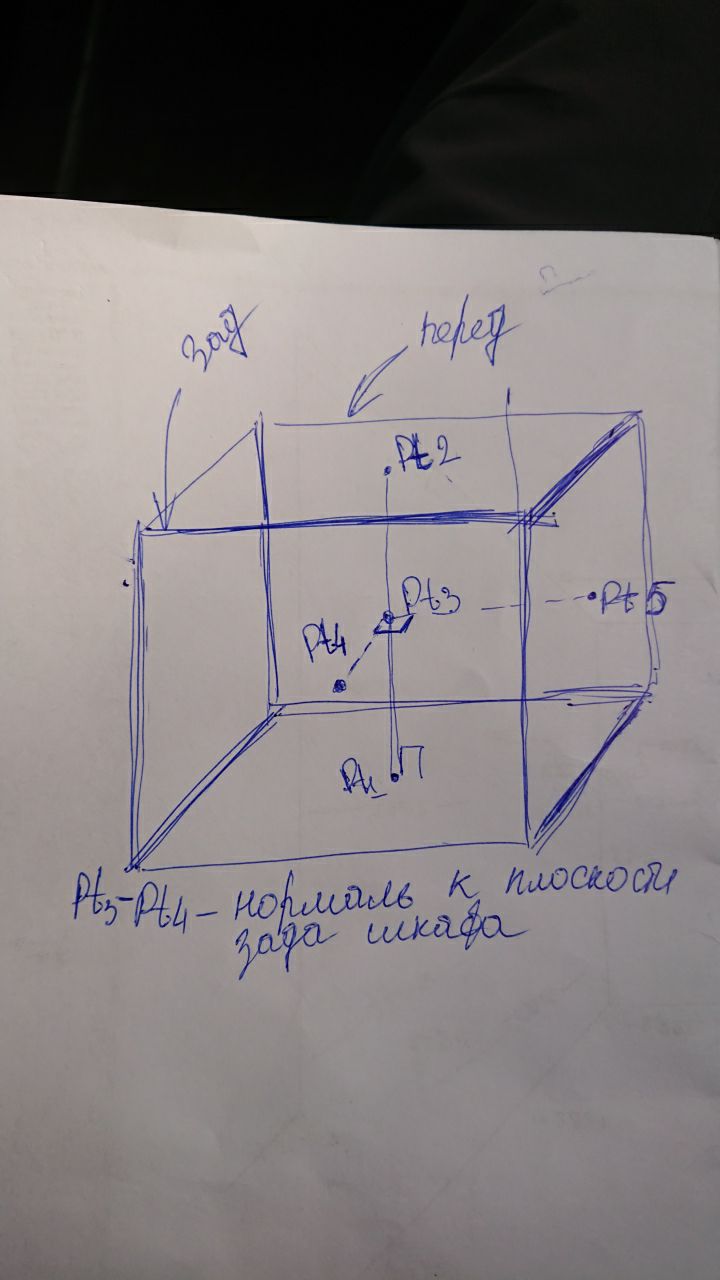 зад
перед
Pt2
Pt3
Pt5
Pt4
Pt1
Pt3-Pt4 - нормаль к плоскости
зада шкафа